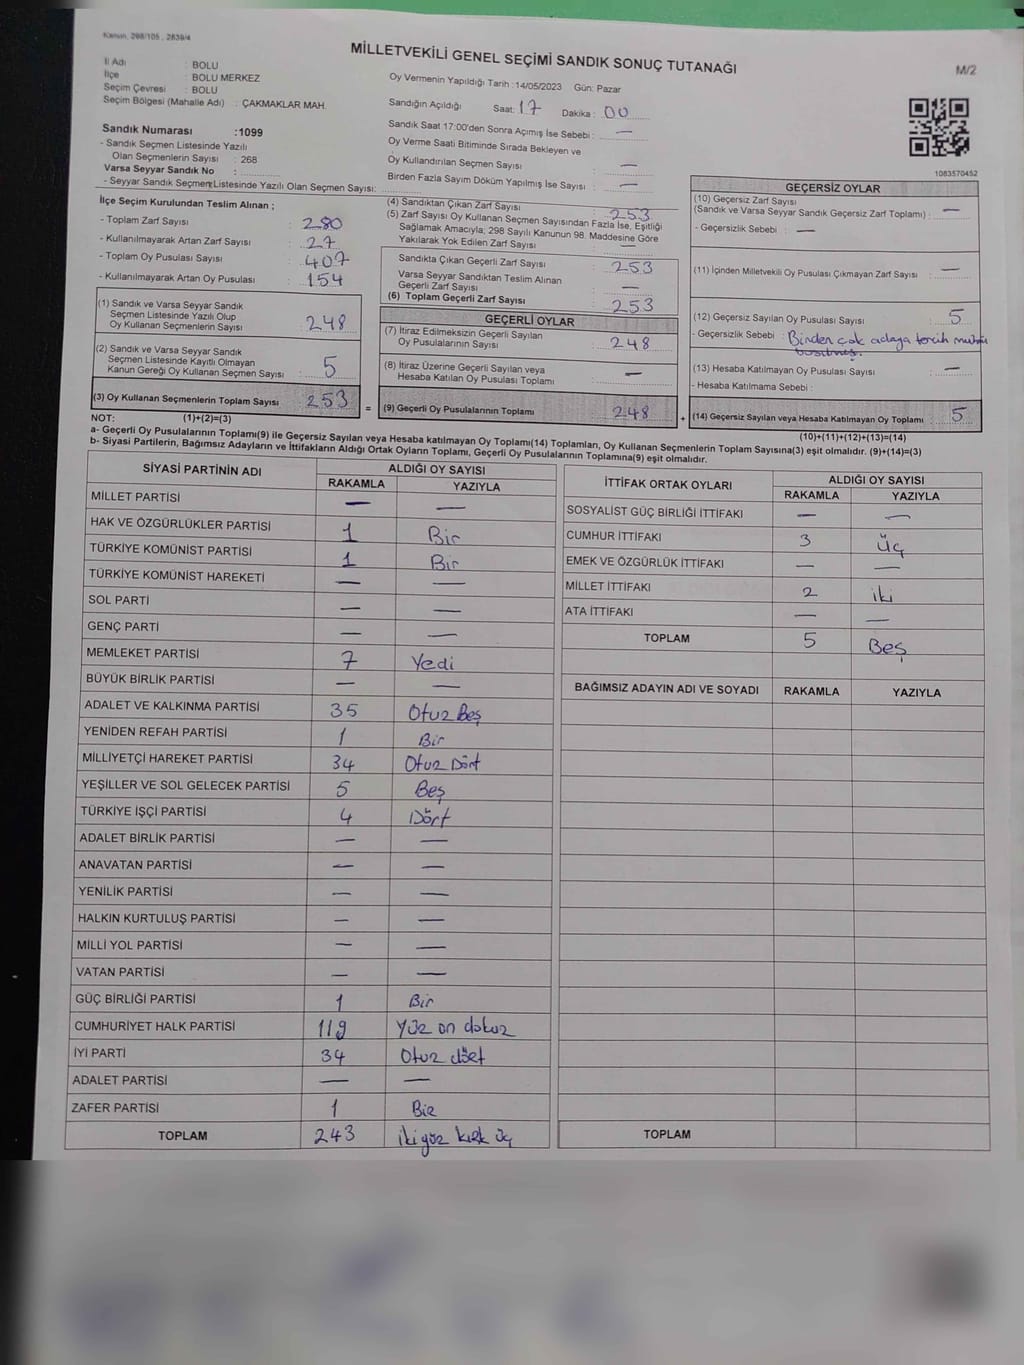 Kanun, 298/105 , 2839/4
MİLLETVEKİLİ GENEL SEÇİMİ SANDIK SONUÇ TUTANAĞI
M/2
İl Adı : BOLU
İlçe : BOLU MERKEZ
Seçim Çevresi : BOLU
Seçim Bölgesi (Mahalle Adı) : ÇAKMAKLAR MAH.
Sandık Numarası :1099
- Sandık Seçmen Listesinde Yazılı
Olan Seçmenlerin Sayısı : 268
Varsa Seyyar Sandık No :
- Seyyar Sandık Seçmen Listesinde Yazılı Olan Seçmen Sayısı:
Oy Vermenin Yapıldığı Tarih : 14/05/2023 Gün: Pazar
Sandığın Açıldığı Saat: 17 Dakika : 00
Sandık Saat 17:00'den Sonra Açımış İse Sebebi : —
Oy Verme Saati Bitiminde Sırada Bekleyen ve
Oy Kullandırılan Seçmen Sayısı : —
Birden Fazla Sayım Döküm Yapılmış İse Sayısı : —
1083570452
İlçe Seçim Kurulundan Teslim Alınan ;
- Toplam Zarf Sayısı : 280
- Kullanılmayarak Artan Zarf Sayısı : 27
- Toplam Oy Pusulası Sayısı : 407
- Kullanılmayarak Artan Oy Pusulası : 154
(1) Sandık ve Varsa Seyyar Sandık
Seçmen Listesinde Yazılı Olup
Oy Kullanan Seçmenlerin Sayısı : 248
(2) Sandık ve Varsa Seyyar Sandık
Seçmen Listesinde Kayıtlı Olmayan
Kanun Gereği Oy Kullanan Seçmen Sayısı : 5
(3) Oy Kullanan Seçmenlerin Toplam Sayısı : 253
(1)+(2)=(3)
(4) Sandıktan Çıkan Zarf Sayısı : 253
(5) Zarf Sayısı Oy Kullanan Seçmen Sayısından Fazla İse, Eşitliği
Sağlamak Amacıyla, 298 Sayılı Kanunun 98. Maddesine Göre
Yakılarak Yok Edilen Zarf Sayısı : —
Sandıkta Çıkan Geçerli Zarf Sayısı : 253
Varsa Seyyar Sandıktan Teslim Alınan
Geçerli Zarf Sayısı : —
(6) Toplam Geçerli Zarf Sayısı : 253
GEÇERLİ OYLAR
(7) İtiraz Edilmeksizin Geçerli Sayılan
Oy Pusulalarının Sayısı : 248
(8) İtiraz Üzerine Geçerli Sayılan veya
Hesaba Katılan Oy Pusulası Toplamı : —
= (9) Geçerli Oy Pusulalarının Toplamı : 248 +
GEÇERSİZ OYLAR
(10) Geçersiz Zarf Sayısı
(Sandık ve Varsa Seyyar Sandık Geçersiz Zarf Toplamı) : —
- Geçersizlik Sebebi : —
(11) İçinden Milletvekili Oy Pusulası Çıkmayan Zarf Sayısı : —
(12) Geçersiz Sayılan Oy Pusulası Sayısı : 5
- Geçersizlik Sebebi : Birden çok adaya tercih mührü
basılmış.
(13) Hesaba Katılmayan Oy Pusulası Sayısı : —
- Hesaba Katılmama Sebebi :
(14) Geçersiz Sayılan veya Hesaba Katılmayan Oy Toplamı : 5
(10)+(11)+(12)+(13)=(14)
NOT:
a- Geçerli Oy Pusulalarının Toplamı(9) ile Geçersiz Sayılan veya Hesaba katılmayan Oy Toplamı(14) Toplamları, Oy Kullanan Seçmenlerin Toplam Sayısına(3) eşit olmalıdır. (9)+(14)=(3)
b- Siyasi Partilerin, Bağımsız Adayların ve İttifakların Aldığı Ortak Oyların Toplamı, Geçerli Oy Pusulalarının Toplamına(9) eşit olmalıdır.
SİYASİ PARTİNİN ADI ALDIĞI OY SAYISI
RAKAMLA YAZIYLA
MİLLET PARTİSİ — —
HAK VE ÖZGÜRLÜKLER PARTİSİ 1 Bir
TÜRKİYE KOMÜNİST PARTİSİ 1 Bir
TÜRKİYE KOMÜNİST HAREKETİ — —
SOL PARTİ — —
GENÇ PARTİ — —
MEMLEKET PARTİSİ 7 Yedi
BÜYÜK BİRLİK PARTİSİ — —
ADALET VE KALKINMA PARTİSİ 35 Otuz Beş
YENİDEN REFAH PARTİSİ 1 Bir
MİLLİYETÇİ HAREKET PARTİSİ 34 Otuz Dört
YEŞİLLER VE SOL GELECEK PARTİSİ 5 Beş
TÜRKİYE İŞÇİ PARTİSİ 4 Dört
ADALET BİRLİK PARTİSİ — —
ANAVATAN PARTİSİ — —
YENİLİK PARTİSİ — —
HALKIN KURTULUŞ PARTİSİ — —
MİLLİ YOL PARTİSİ — —
VATAN PARTİSİ — —
GÜÇ BİRLİĞİ PARTİSİ 1 Bir
CUMHURİYET HALK PARTİSİ 119 Yüz on dokuz
İYİ PARTİ 34 Otuz dört
ADALET PARTİSİ — —
ZAFER PARTİSİ 1 Bir
TOPLAM 243 iki yüz kırk üç
İTTİFAK ORTAK OYLARI ALDIĞI OY SAYISI
RAKAMLA YAZIYLA
SOSYALİST GÜÇ BİRLİĞİ İTTİFAKI — —
CUMHUR İTTİFAKI 3 Üç
EMEK VE ÖZGÜRLÜK İTTİFAKI — —
MİLLET İTTİFAKI 2 iki
ATA İTTİFAKI — —
TOPLAM 5 Beş
BAĞIMSIZ ADAYIN ADI VE SOYADI RAKAMLA YAZIYLA
TOPLAM